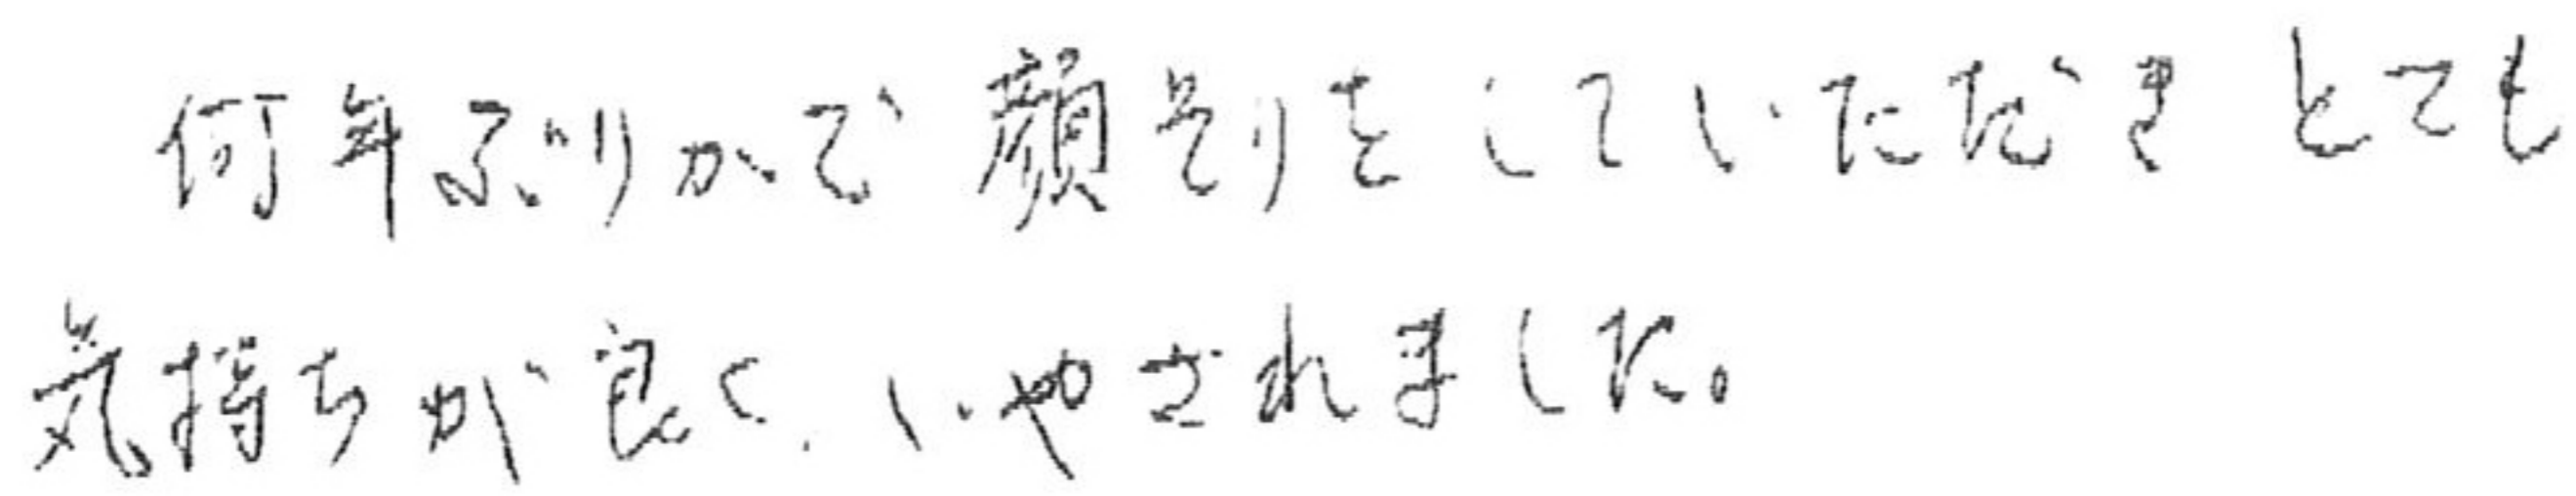 何年ぶりかで顔そりをしていただきとても
気持ちが良く、いやされました。